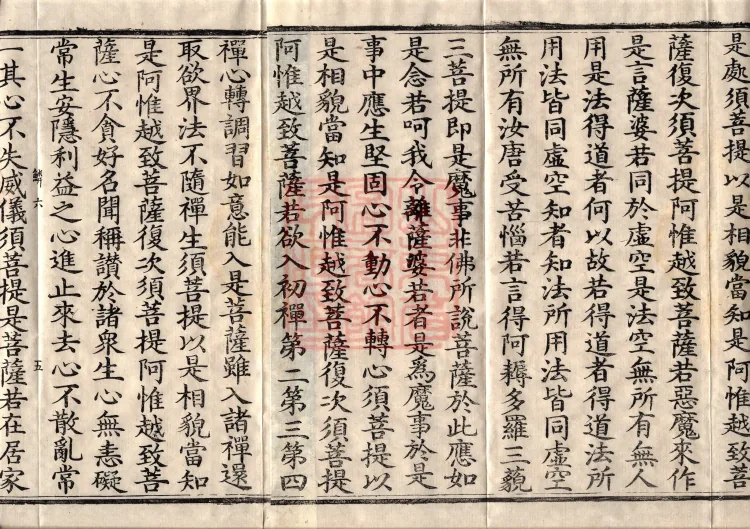 是處須菩提以是相貌當知是阿惟越致菩
薩復次須菩提阿惟越致菩薩若惡魔來作
是言薩婆若同於虛空是法空無所有無人
用是法得道者何以故若得道者得道法所
用法皆同虛空知者知法所用法皆同虛空
無所有汝唐受苦惱若言得阿耨多羅三藐
三菩提即是魔事非佛所說菩薩於此應如
是念若呵我令離薩婆若者是為魔事於是
事中應生堅固心不動心不轉心須菩提以
是相貌當知是阿惟越致菩薩復次須菩提
阿惟越致菩薩若欲入初禪第二第三第四
禪心轉調習如意能入是菩薩雖入諸禪還
取欲界法不隨禪生須菩提以是相貌當知
是阿惟越致菩薩復次須菩提阿惟越致菩
薩心不貪好名聞稱讚於諸衆生心無恚礙
常生安隱利益之心進止來去心不散亂常
鱗六 五
一其心不失威儀須菩提是菩薩若在居家